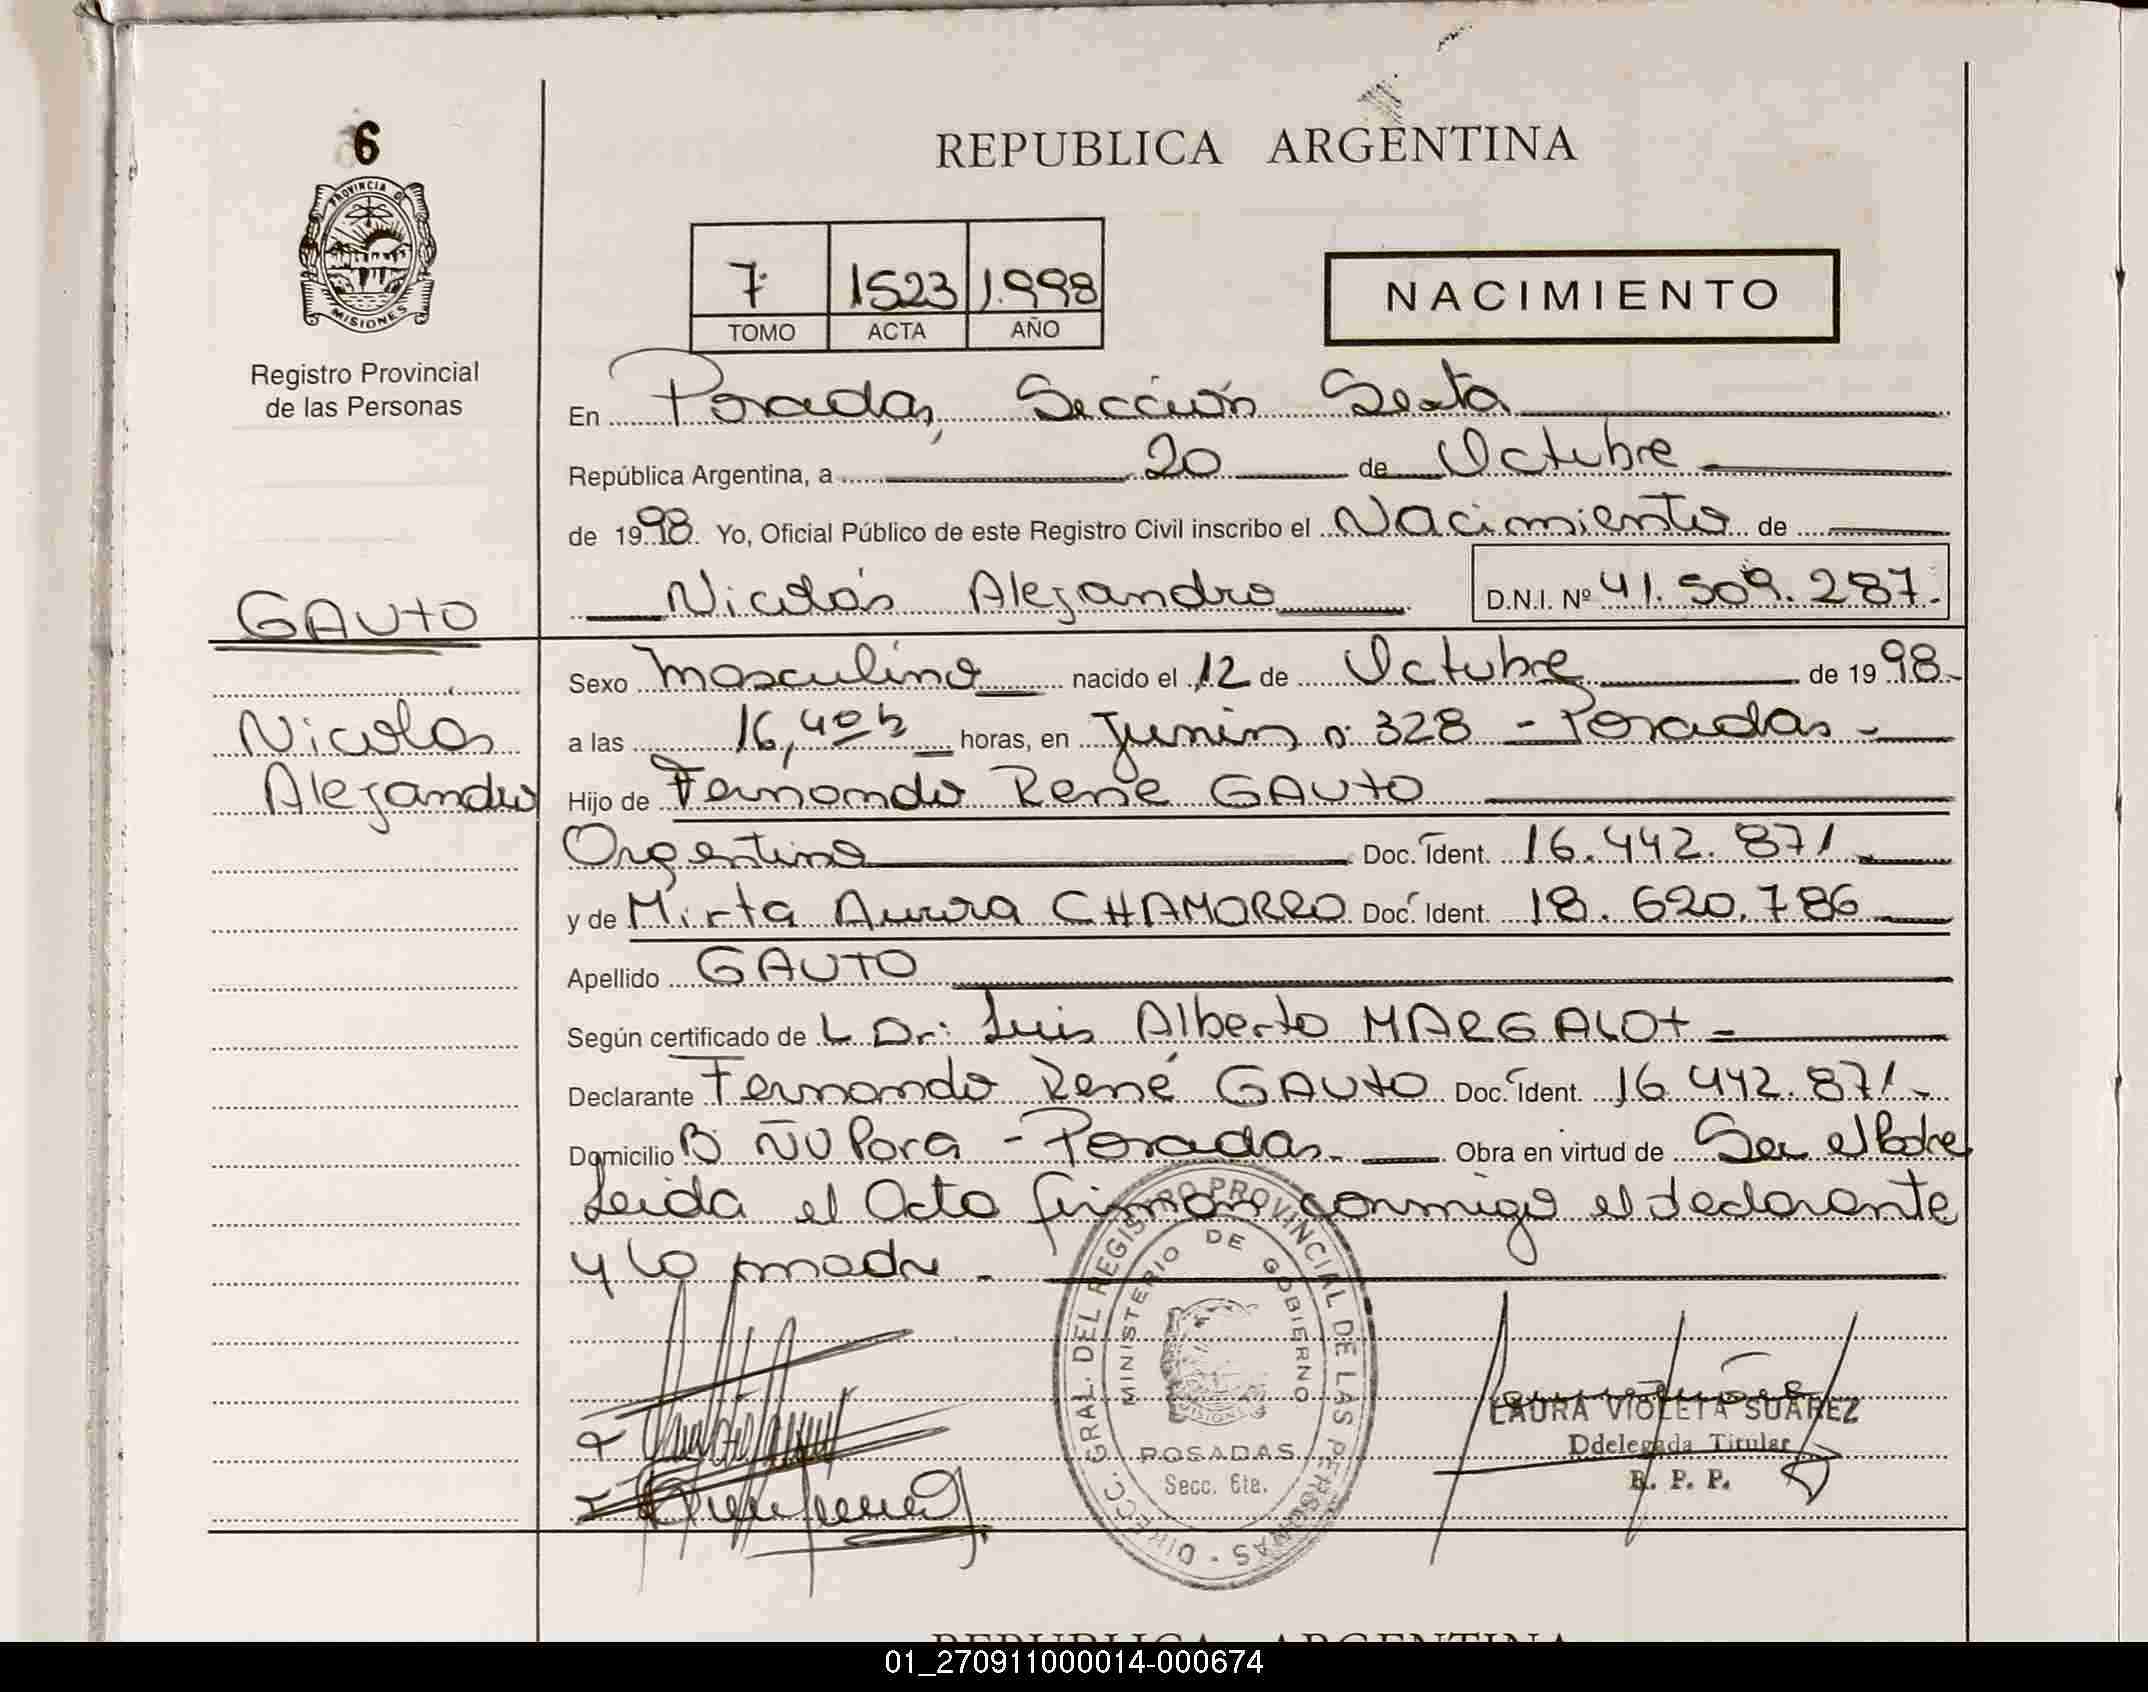 6
PROVINCIA DE
MISIONES
Registro Provincial
de las Personas
REPUBLICA ARGENTINA
7 1523 1.998
TOMO ACTA AÑO
NACIMIENTO
En Posadas, Sección Sexta
República Argentina, a 20 de Octubre
de 1998. Yo, Oficial Público de este Registro Civil inscribo el Nacimiento de
Nicolás Alejandro D.N.I. Nº 41.509.287.-
GAUTO
Nicolás
Alejandro
Sexo Masculino nacido el 12 de Octubre de 1998.-
a las 16,40 h horas, en Junín nº 328 - Posadas -
Hijo de Fernando René GAUTO
Argentino Doc. Ident. 16.442.871
y de Mirta Aurora CHAMORRO Doc. Ident. 18.620.786
Apellido GAUTO
Según certificado de L Dr: Luis Alberto MARGALOT -
Declarante Fernando René GAUTO Doc. Ident. 16.442.871.-
Domicilio Bº ÑU Pora - Posadas Obra en virtud de Ser el Padre
Leida el Acta firman conmigo el declarante
y la madre -
DIRECC. GRAL. DEL REGISTRO PROVINCIAL DE LAS PERSONAS
MINISTERIO DE GOBIERNO
MISIONES
POSADAS
Secc. 6ta.
LAURA VIOLETA SUAREZ
Ddelegada Titular
R. P. P.
REPUBLICA ARGENTINA
01_270911000014-000674